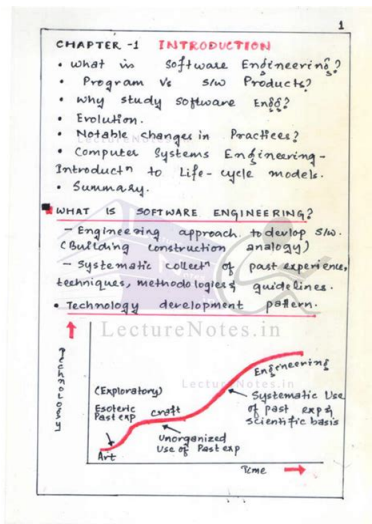 1
CHAPTER -1 INTRODUCTION
• What is Software Engineering?
• Program Vs S/W Products?
• Why study Software Engg?
• Evolution.
• Notable changes in Practices?
• Computer Systems Engineering-
Introductn to Life-cycle models.
• Summary.
WHAT IS SOFTWARE ENGINEERING?
- Engineering approach to devlop S/w.
(Building construction analogy)
- Systematic collectn of past experience,
techniques, methodologies & guidelines.
• Technology development pattern.
LectureNotes.in
Technology
Engineering
(Exploratory)
Esoteric
Past exp
Craft
Systematic Use
of past exp &
Scientific basis
Unorganized
Use of Past exp
Art
Time